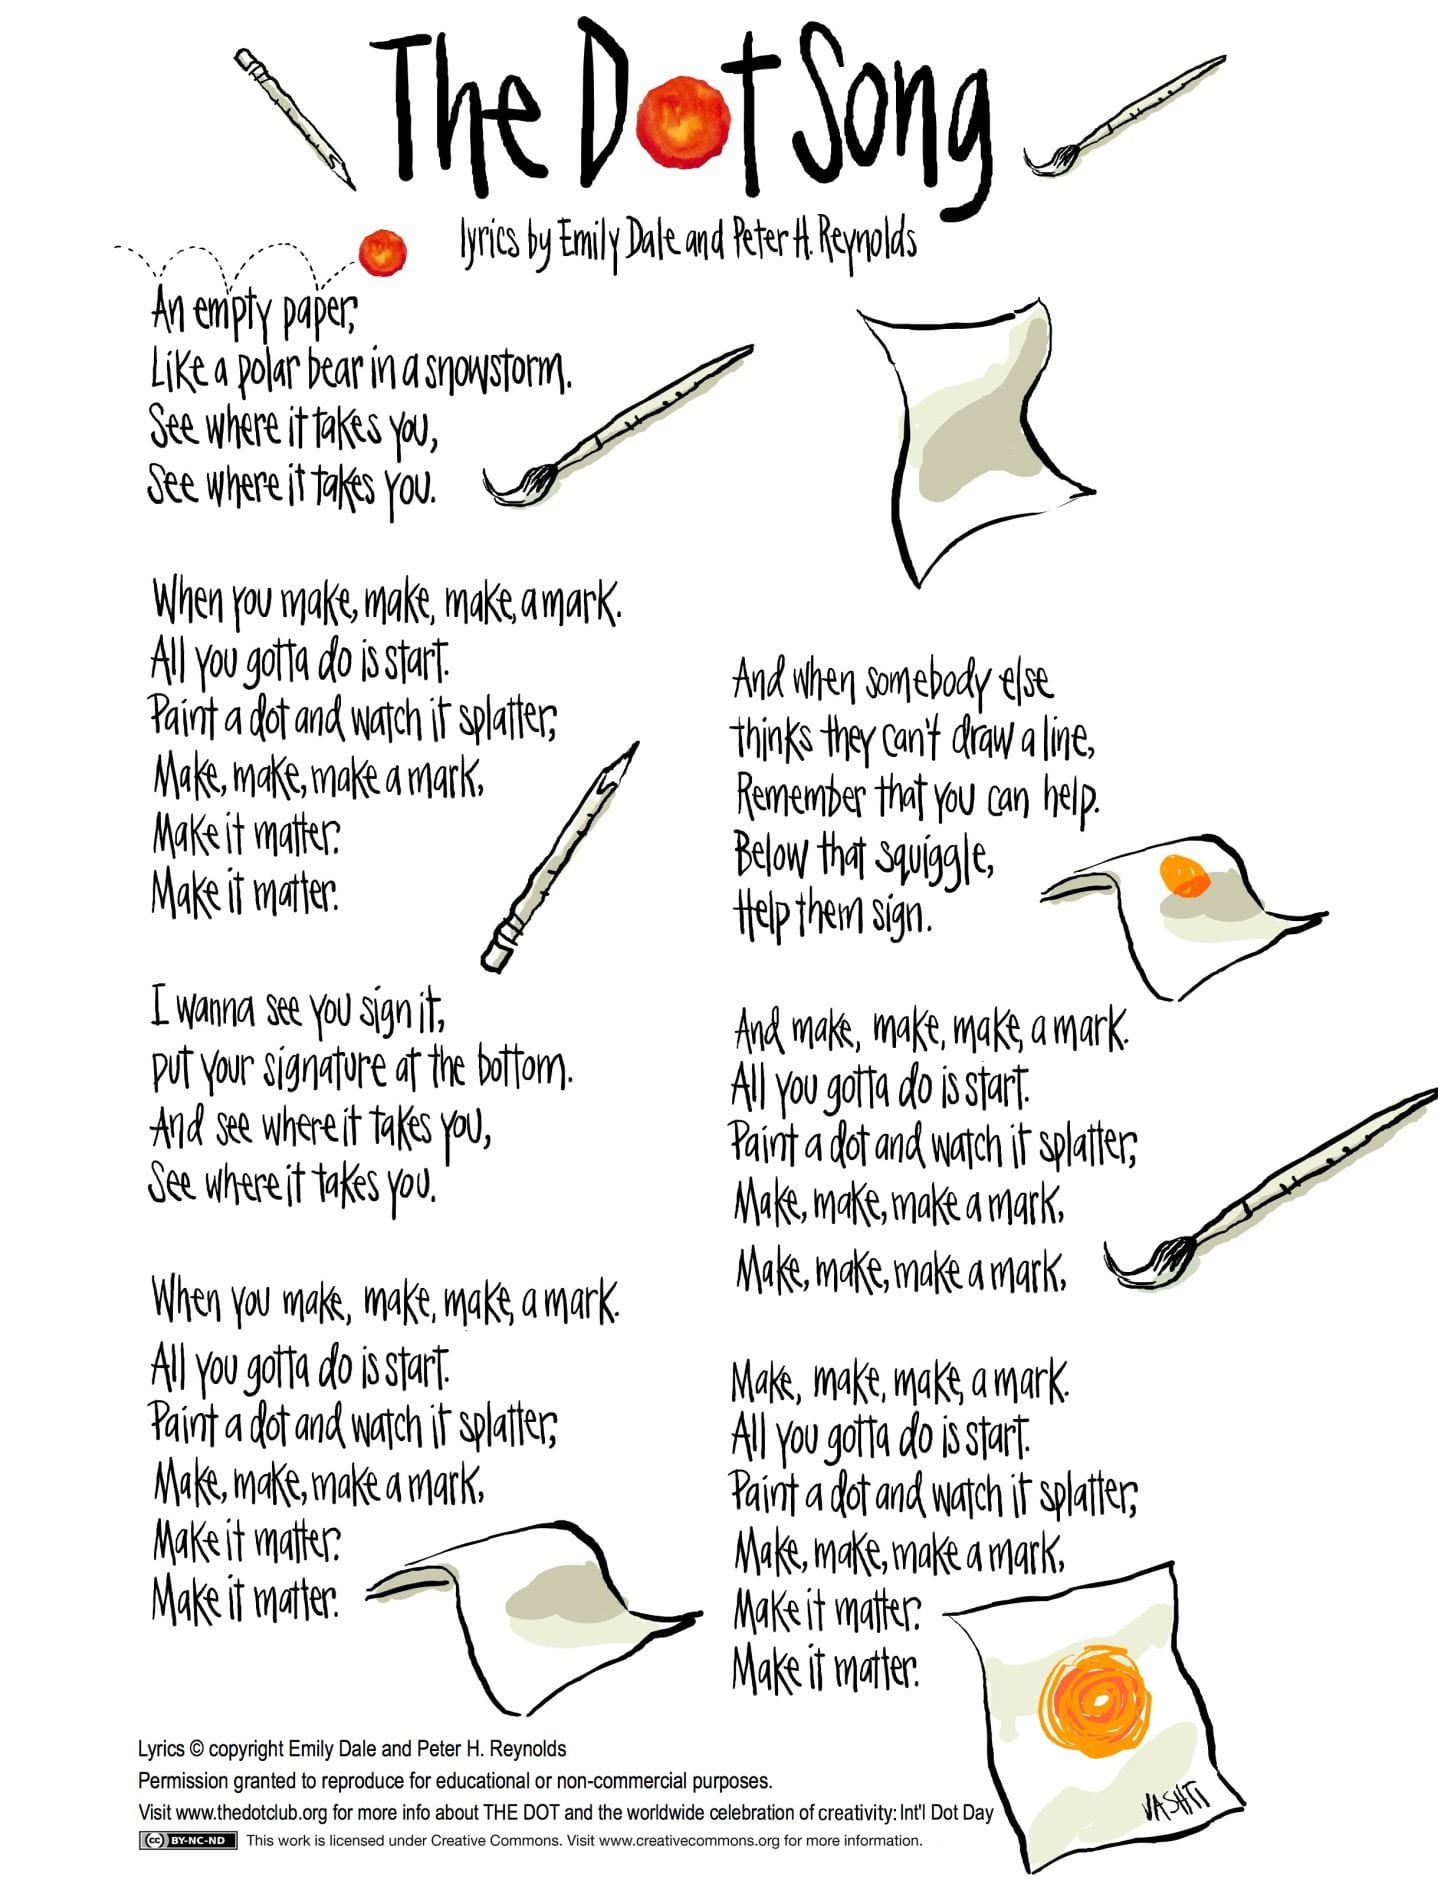 The Dot Song
lyrics by Emily Dale and Peter H. Reynolds
An empty paper,
Like a polar bear in a snowstorm.
See where it takes you,
See where it takes you.
When you make, make, make, a mark.
All you gotta do is start.
Paint a dot and watch it splatter,
Make, make, make a mark,
Make it matter.
Make it matter.
I wanna see you sign it,
put your signature at the bottom.
And see where it takes you,
See where it takes you.
When you make, make, make, a mark.
All you gotta do is start.
Paint a dot and watch it splatter,
Make, make, make a mark,
Make it matter.
Make it matter.
And when somebody else
thinks they can't draw a line,
Remember that you can help.
Below that squiggle,
Help them sign.
And make, make, make, a mark.
All you gotta do is start.
Paint a dot and watch it splatter,
Make, make, make a mark,
Make, make, make a mark,
Make, make, make, a mark.
All you gotta do is start.
Paint a dot and watch it splatter,
Make, make, make a mark,
Make it matter.
Make it matter.
VASHTI
Lyrics © copyright Emily Dale and Peter H. Reynolds
Permission granted to reproduce for educational or non-commercial purposes.
Visit www.thedotclub.org for more info about THE DOT and the worldwide celebration of creativity: Int'l Dot Day
cc BY-NC-ND This work is licensed under Creative Commons. Visit www.creativecommons.org for more information.